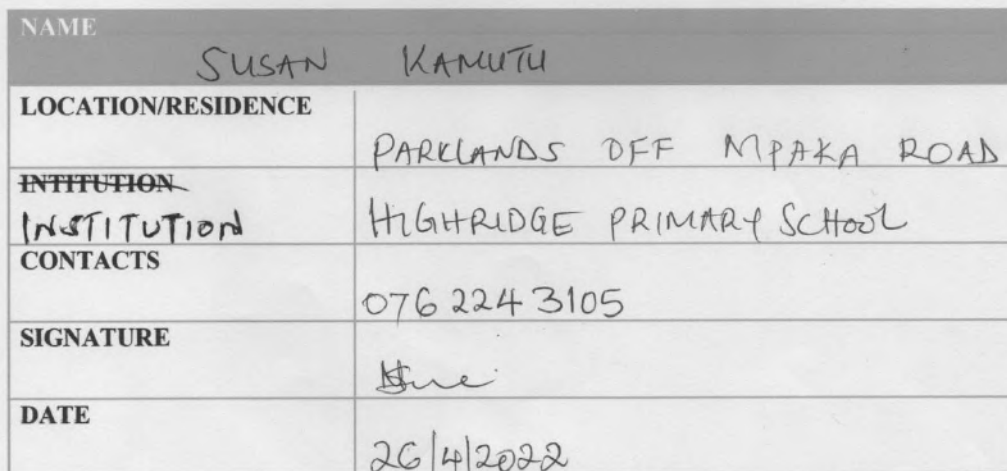 NAME
SUSAN KAMUTU
LOCATION/RESIDENCE
PARKLANDS OFF MPAKA ROAD
INTITUTION
INSTITUTION HIGHRIDGE PRIMARY SCHOOL
CONTACTS
076 224 3105
SIGNATURE
DATE
26/4/2022